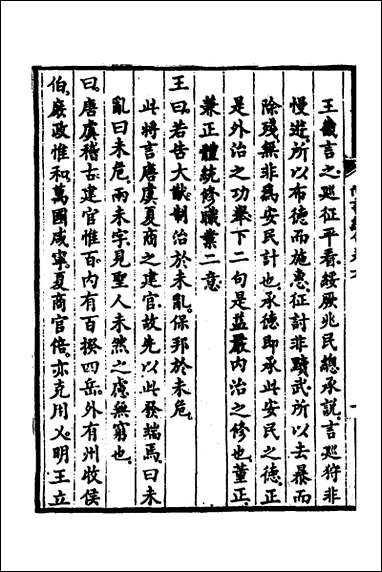 王畿言之巡征平看綏厥兆民總承説言巡狩非
慢遊所以布德而施惠征討非黷武所以去暴而
除殘無非爲安民計也承德即承此安民之德正
是外治之功舉下二句是益嚴内治之修也董正
兼正體統修職業二意
王曰若昔大猷制治於未亂保邦於未危
此將言唐虞夏商之建官故先以此發端焉曰未
亂曰未危兩未字見聖人未然之慮無窮也
曰唐虞稽古建官惟百内有百揆四岳外有州牧侯
伯庶政惟和萬國咸寧夏商官倍亦克用乂明王立